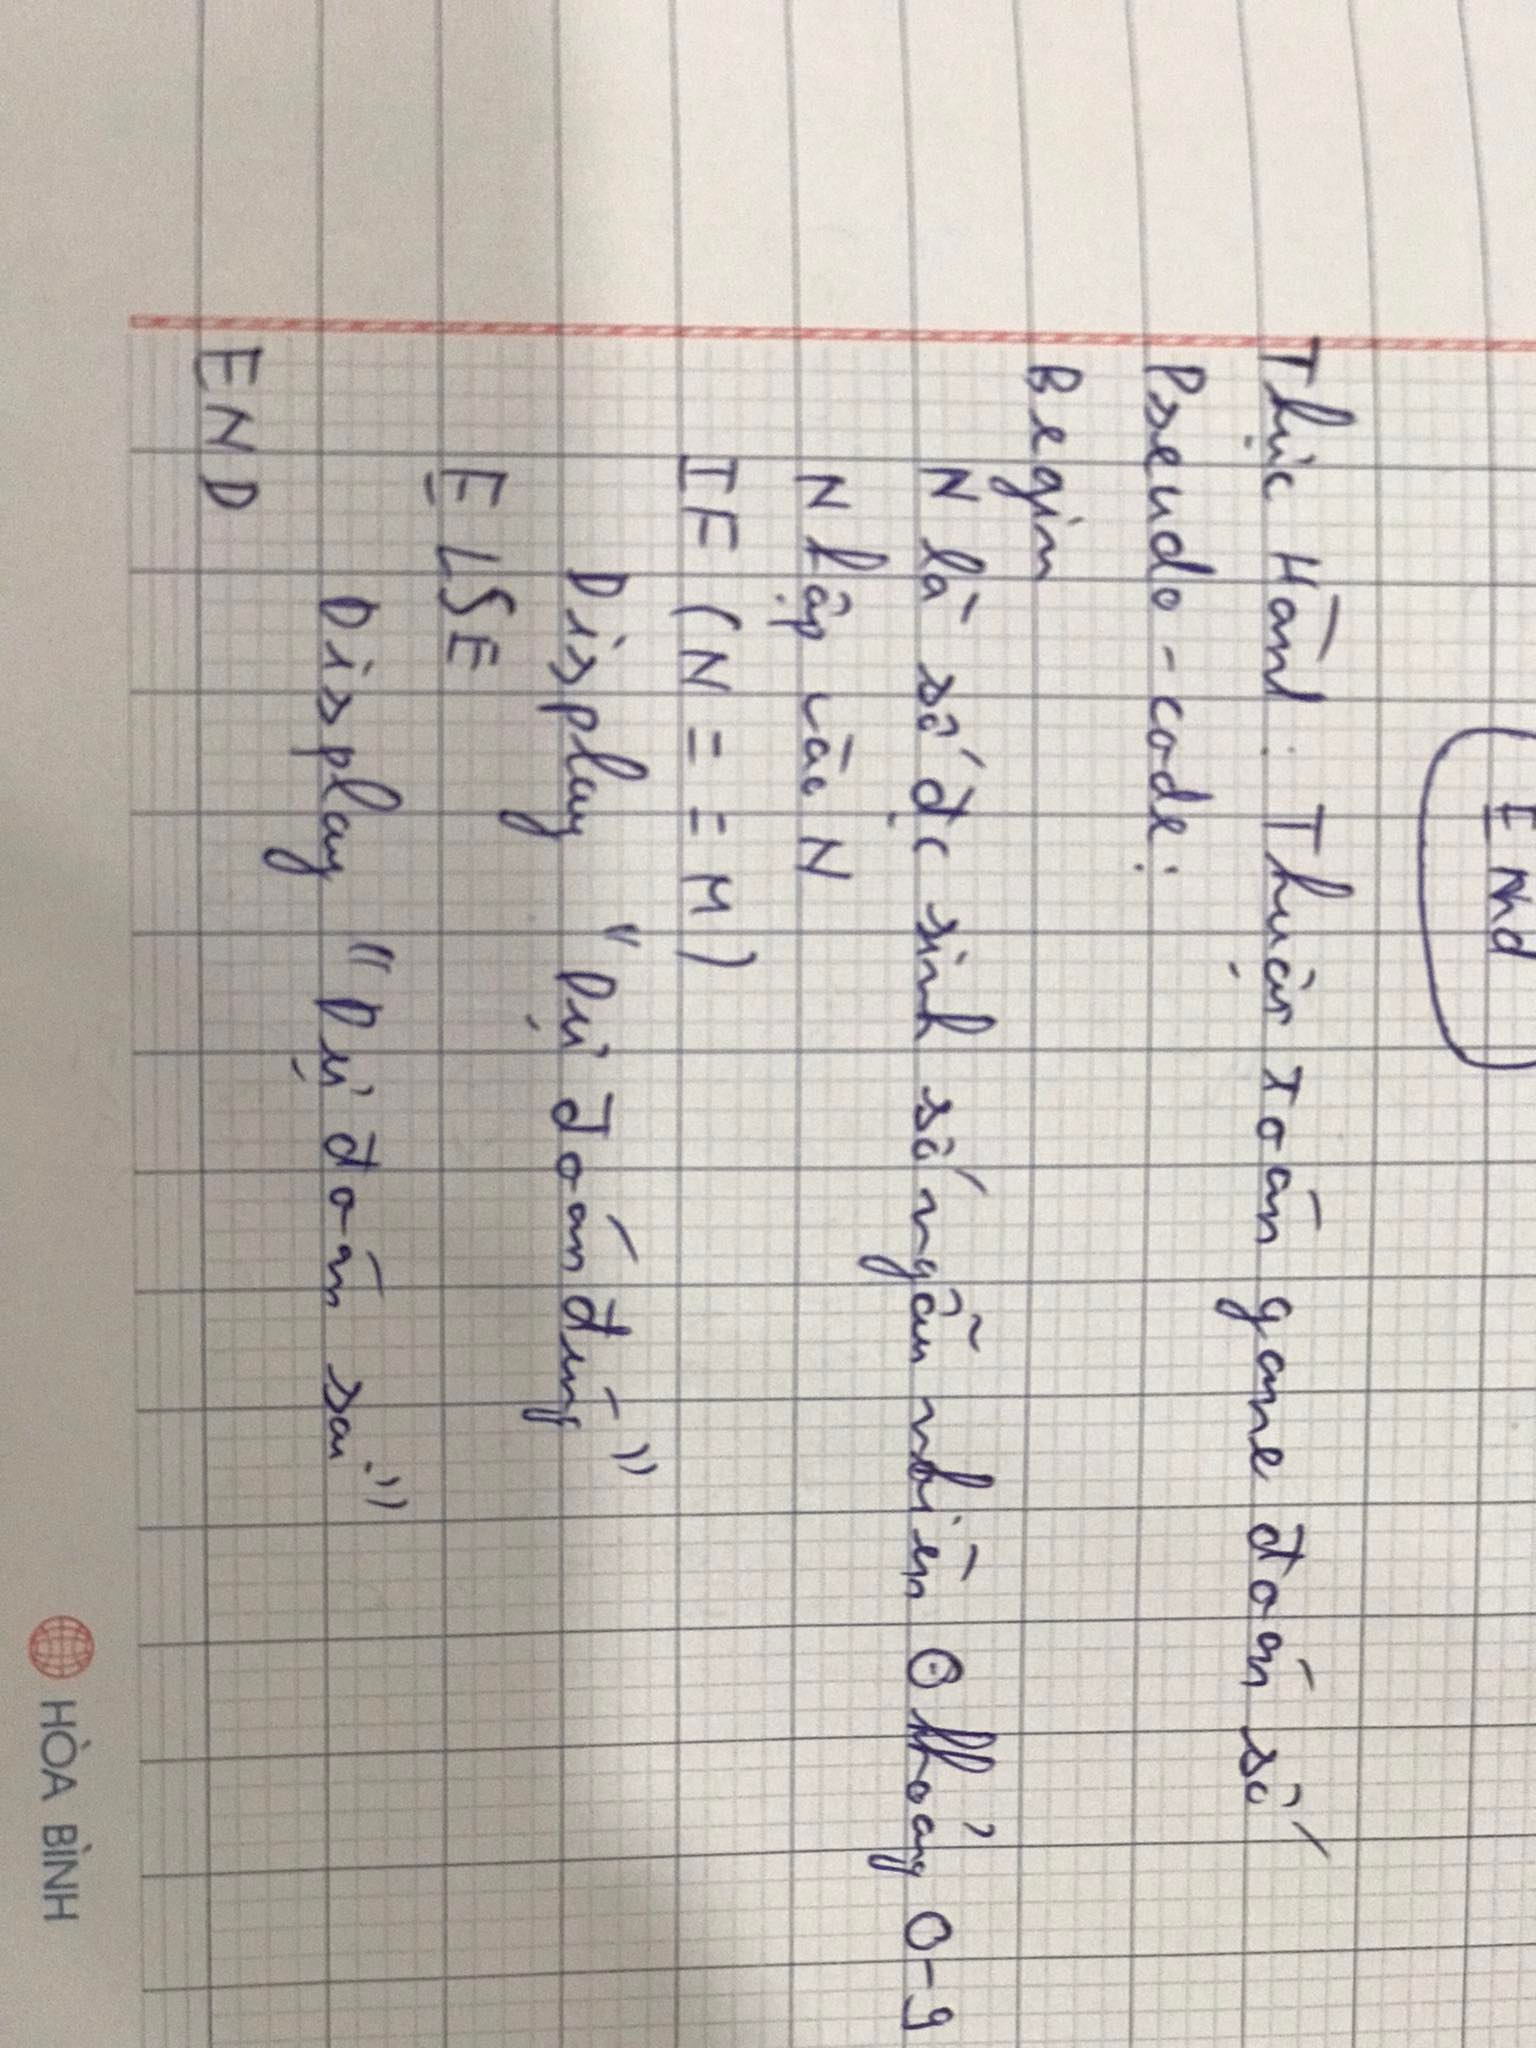 End
Thực Hành : Thuật toán game đoán số
Pseudo-code:
Begin
N là số đc sinh số ngẫu nhiên Θ khoảng 0-9
Nhập vào N
IF (N == M)
Display "Dự đoán đúng"
ELSE
Display "Dự đoán sai"
END
HÒA BÌNH